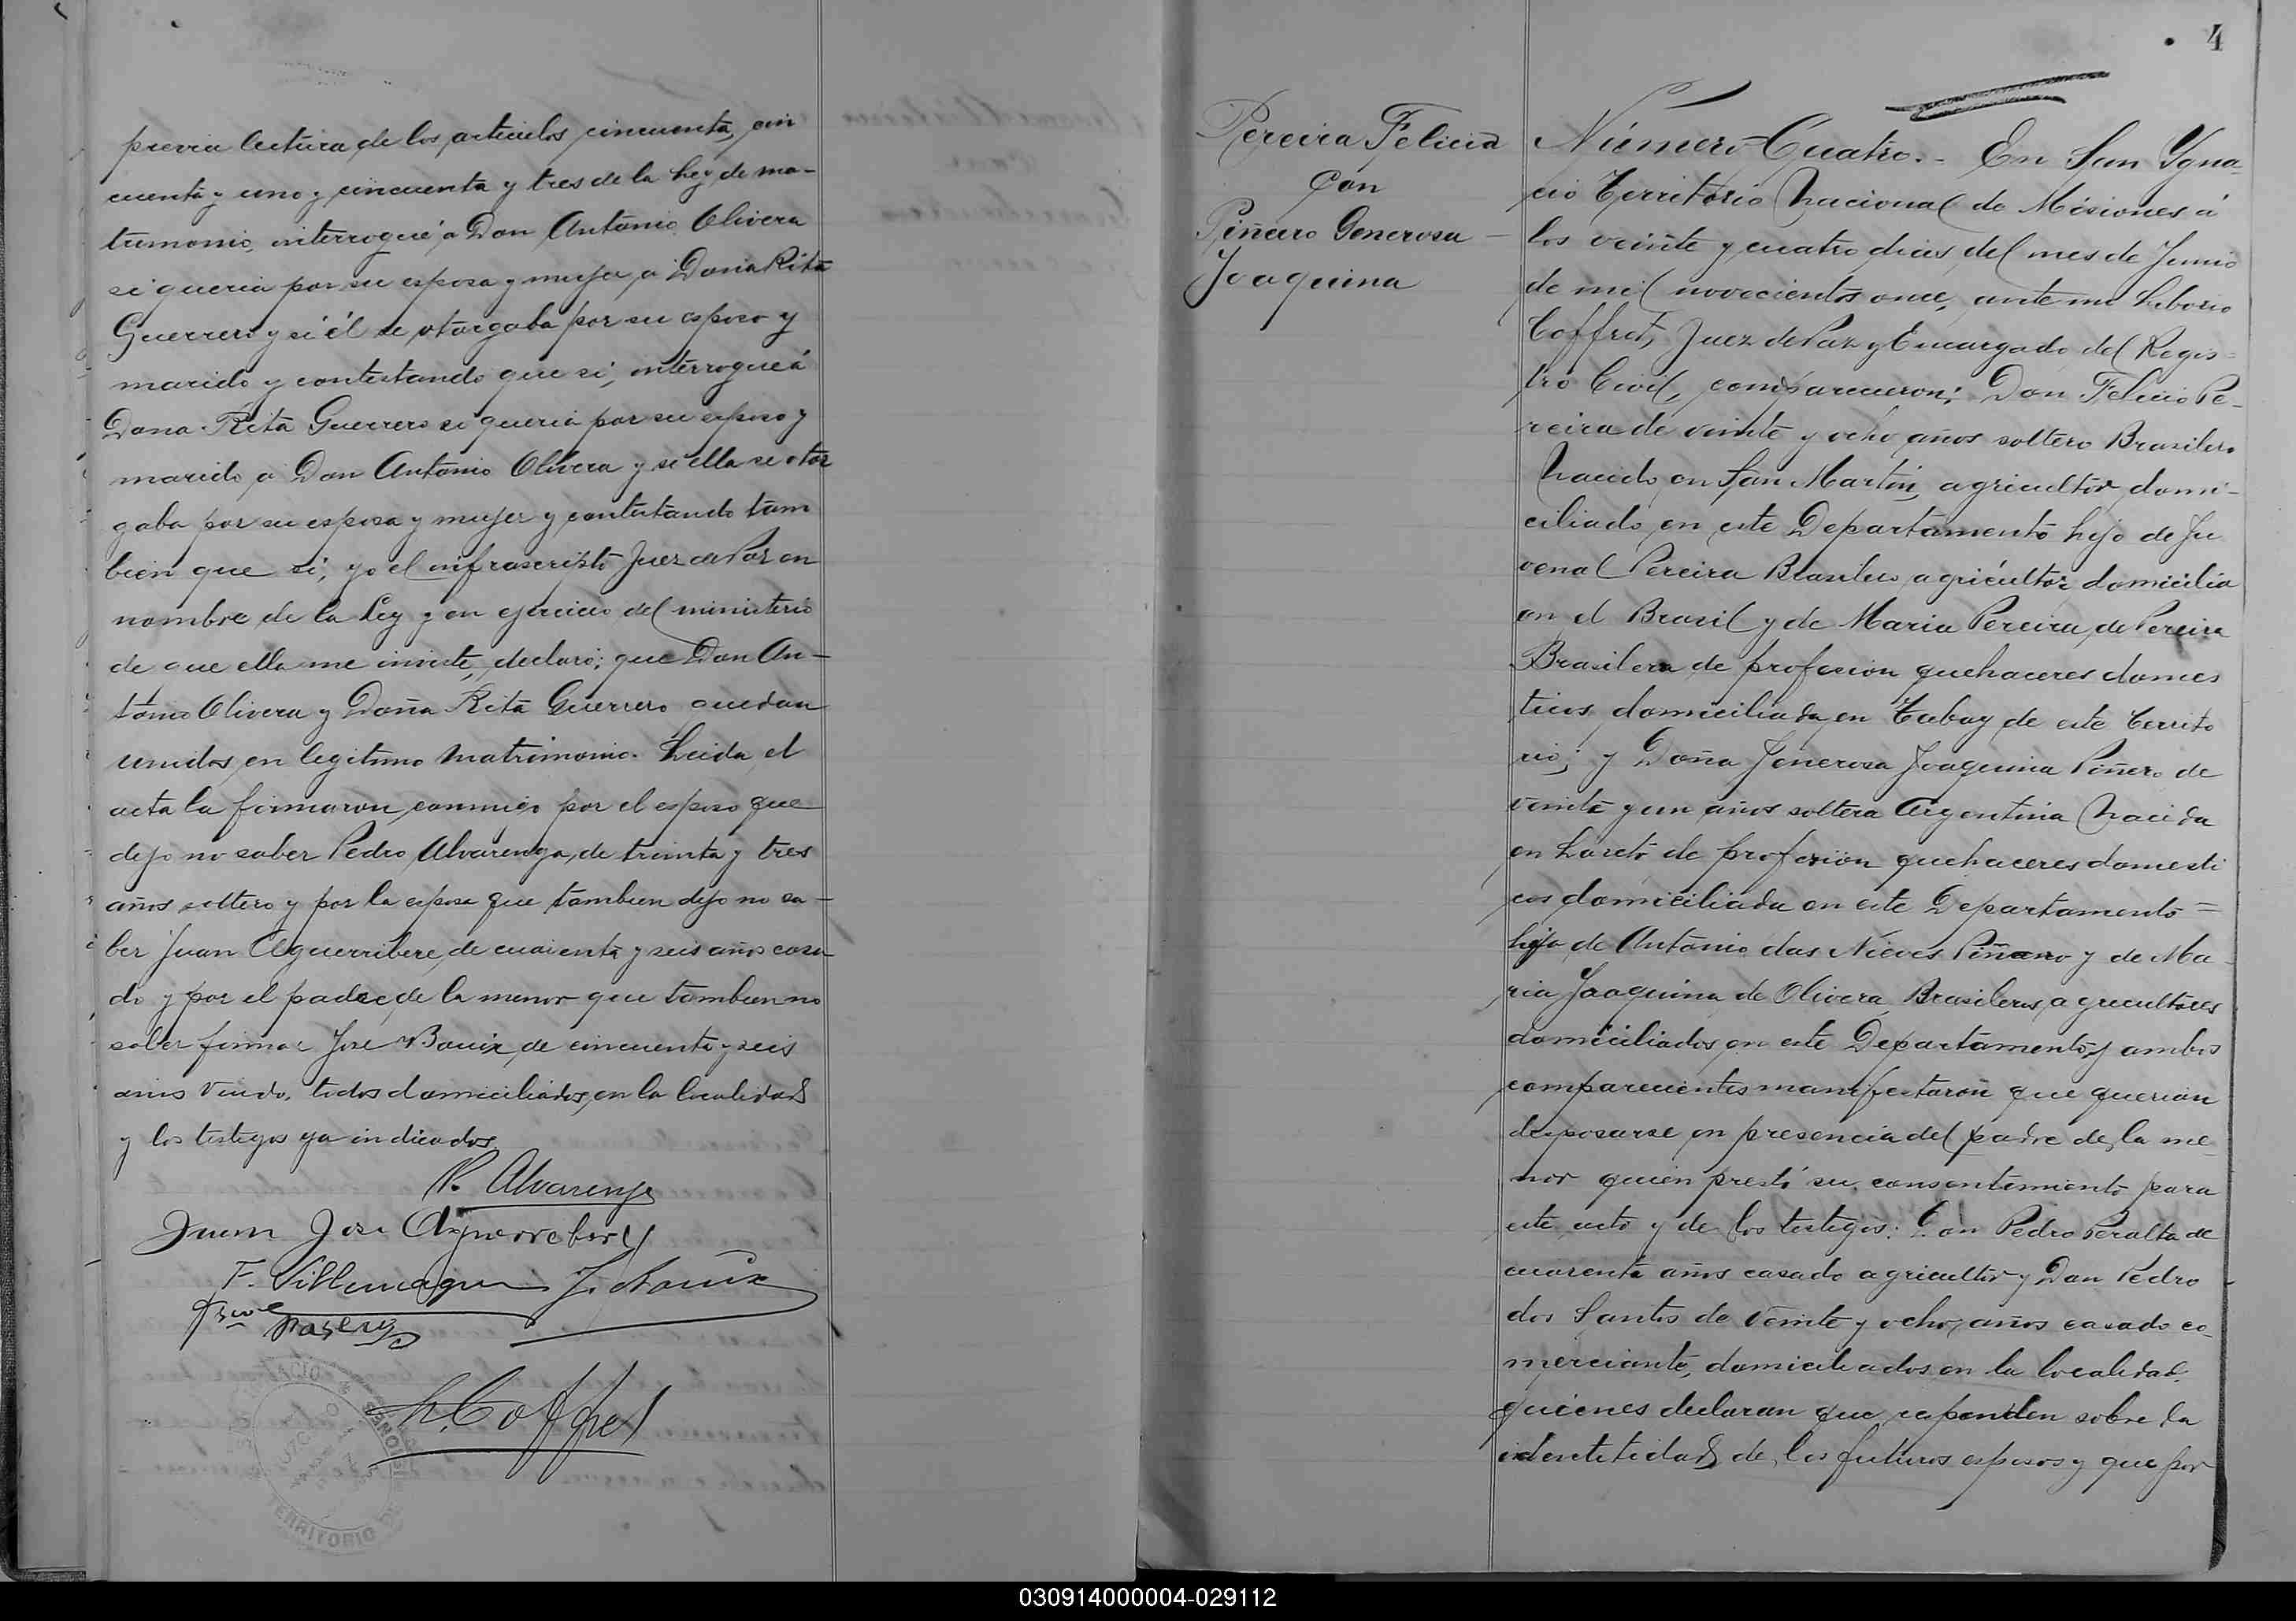 previa lectura de los articulos cincuenta, cin
cuenta y uno y cincuenta y tres de la Ley de ma-
trimonio, interrogué a Don Antonio Olivera
si queria por su esposa y mujer a Doña Rita
Guerrero y si él se otorgaba por su esposo y
marido y contestando que si, interrogue á
Dona Rita Guerrero si queria por su esposo y
marido a Don Antonio Olivera y si ella se otor
gaba por su esposa y mujer y contestando tam
bien que si, yo el infrascripto Juez de Paz en
nombre de la Ley y en ejercicio del ministerio
de que ella me inviste, declaro; que Don An-
tonio Olivera y Doña Rita Guerrero quedan
unidos en legitimo matrimonio. Leida el
acta la firmaron conmigo por el esposo que
dijo no saber Pedro Alvarenga, de treinta y tres
años soltero y por la esposa que tambien dijo no sa-
ber Juan Aguerribere, de cuarenta y seis años casa-
do y por el padre de la menor que tambien no
saber firmar Jose Bauix de cincuenta y seis
anis viudo, todos domiciliados en la localidad
y los testigos ya indicados.
P. Alvarenga
Juan Jose Aguerrebery
F. Villemagne J. Bauix
L. Coffret
TERRITORIO DE MISIONES
4
Pereira Felicio
con
Piñero Generosa
Joaquina
Número Cuatro.- En San Ygna-
cio Territorio Nacional de Misiones á
los veinte y cuatro dias del mes de Junio
de mil novecientos once, ante mi Liborio
Coffret, Juez de Paz y Encargado del Regis-
tro Civil, comparecieron; Don Felicio Pe-
reira de veinte y ocho años soltero Brasilero
Nacido en San Martin, agricultor domi-
ciliado en este Departamento hijo de Ju
venal Pereira Brasilero agricultor domicilia
en el Brasil y de Maria Pereira de Pereira
Brasilera de profesion quehaceres domes
ticos domiciliada en Tabay de este Territo
rio; y Doña Jenerosa Joaquina Piñero de
veinte y un años soltera Argentina Nacida
en Loreto de profesion quehaceres domesti
cos domiciliada en este Departamento =
hija de Antonio das Nieves Piñero y de Ma-
ria Joaquina de Olivera Brasileros, agricultores
domiciliados en este Departamento y ambos
comparecientes manifestaron que querian
desposarse en presencia del padre de la me
nor quien prestó su consentimiento para
este acto y de los testigos: Don Pedro Peralta de
cuarenta años casado agricultor y Don Pedro
dos Santos de veinte y ocho años casado co-
merciante, domiciliados en la localidad.
quienes declaran que responden sobre la
identitidad de los futuros esposos y que por
030914000004-029112